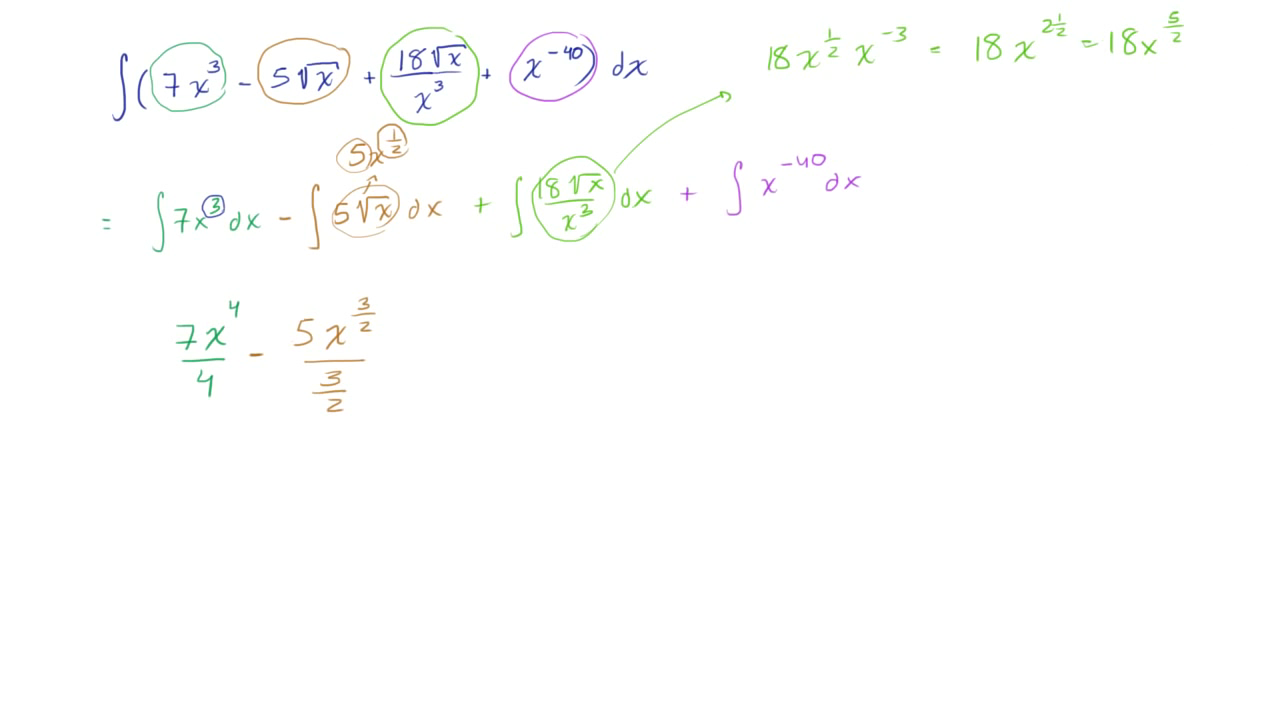 ∫(7x³ - 5√x + 18√x/x³ + x⁻⁴⁰) dx
18x^(1/2) x⁻³ = 18x^(2 1/2) = 18x^(5/2)
5x^(1/2)
= ∫7x³ dx - ∫5√x dx + ∫18√x/x³ dx + ∫x⁻⁴⁰ dx
7x⁴/4 - 5x^(3/2)/(3/2)